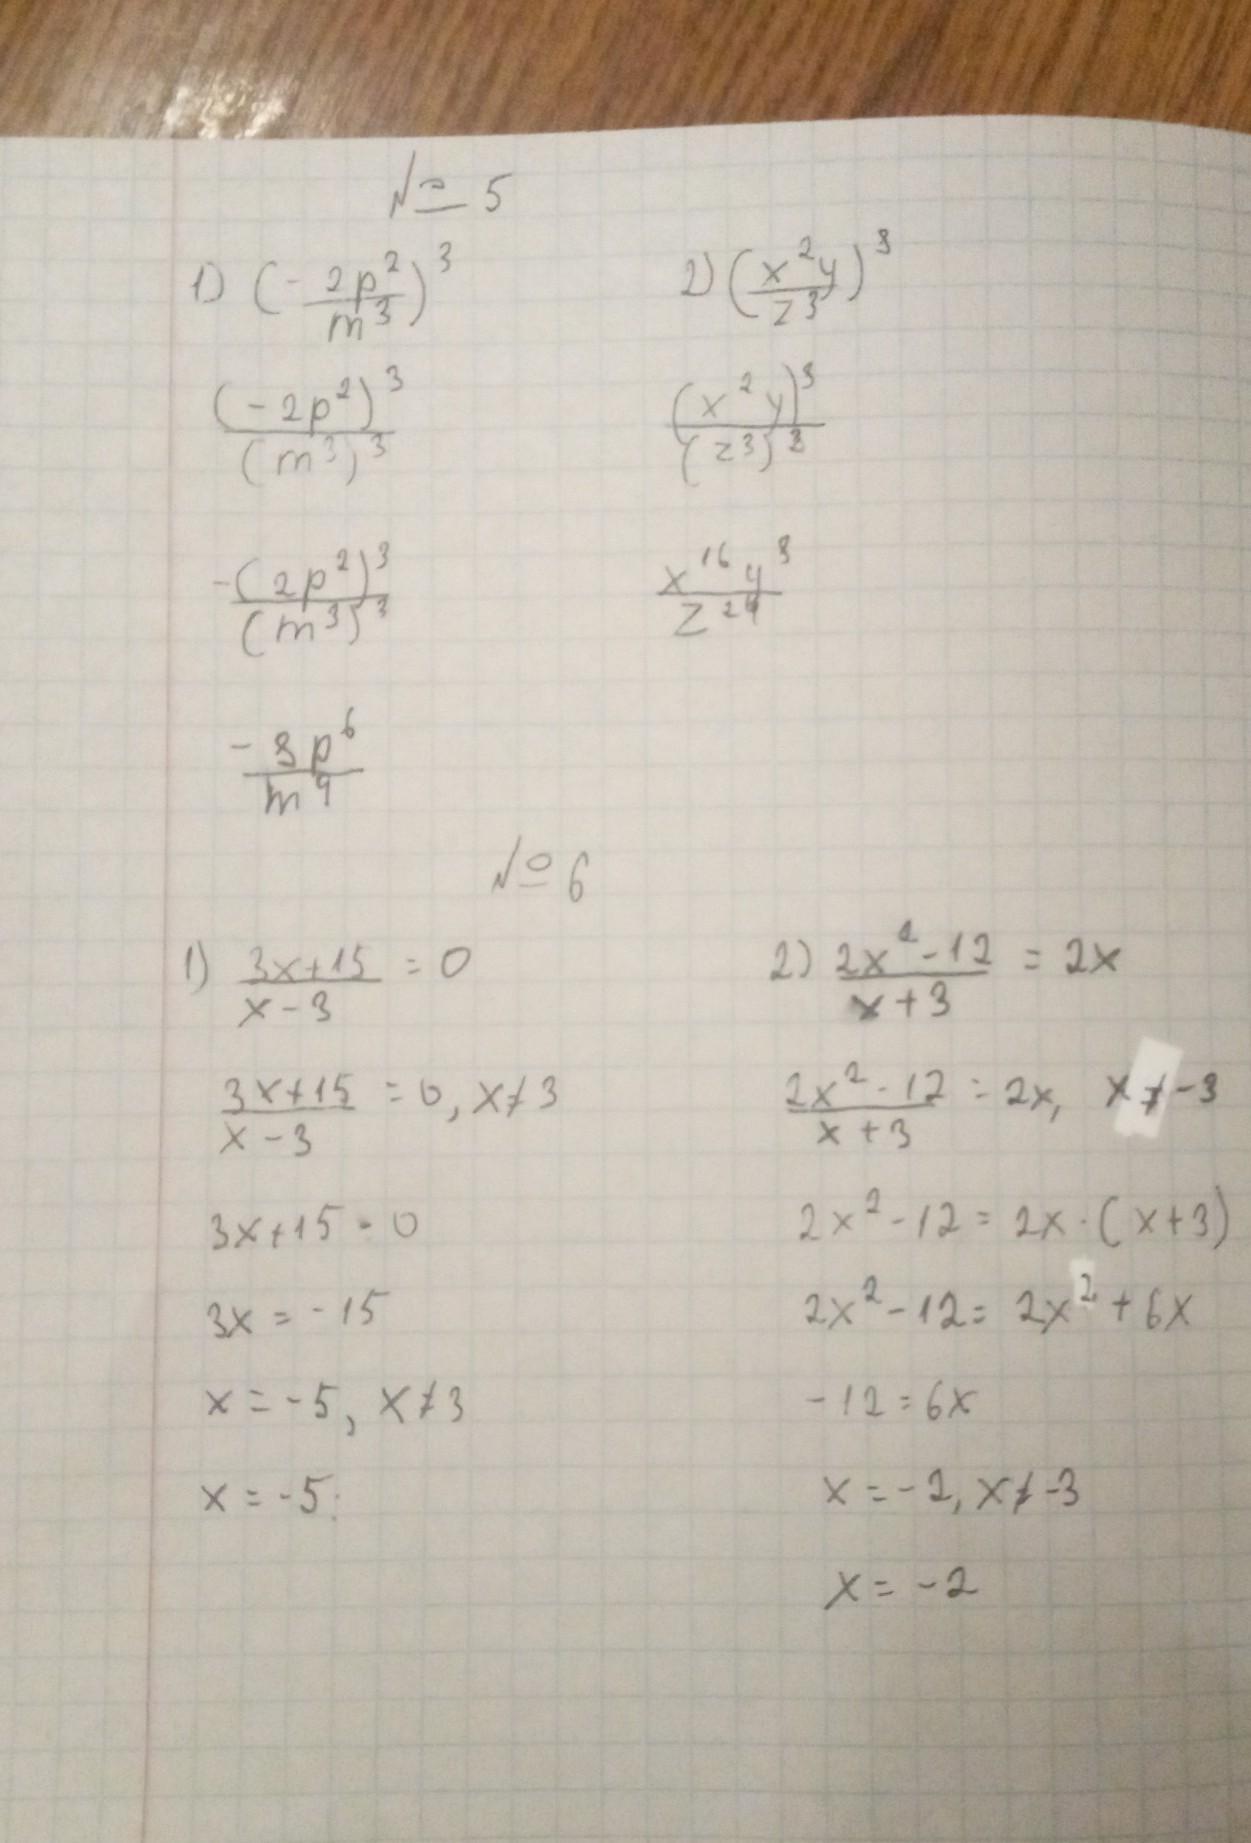 № 5
1) (- 2p²/m³)³
2) (x²y/z³)⁸
(-2p²)³/(m³)³
(x²y)⁸/(z³)⁸
-(2p²)³/(m³)³
x¹⁶y⁸/z²⁴
-8p⁶/m⁹
№ 6
1) 3x+15/x-3 = 0
3x+15/x-3 = 0, x≠3
3x+15=0
3x = -15
x = -5, x≠3
x = -5.
2) 2x²-12/x+3 = 2x
2x²-12/x+3 = 2x, x≠-3
2x²-12 = 2x·(x+3)
2x²-12 = 2x²+6x
-12 = 6x
x = -2, x≠-3
x = -2